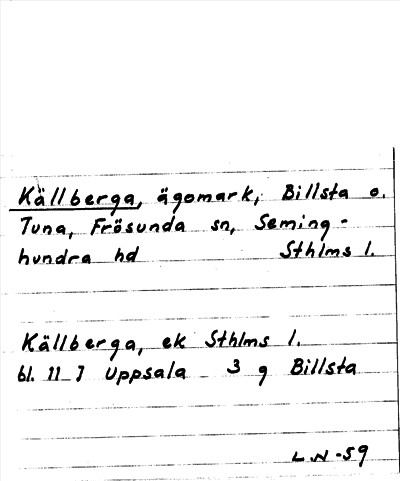 Källberga, ägomark, Billsta o.
Tuna, Frösunda sn, Seming-
hundra hd Sthlms l.
Källberga, ek Sthlms l.
bl. 11 I Uppsala 3 g Billsta
L N -59